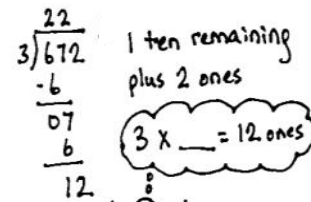 22
3)672
-6
07
6
12
1 ten remaining
plus 2 ones
3 x __ = 12 ones